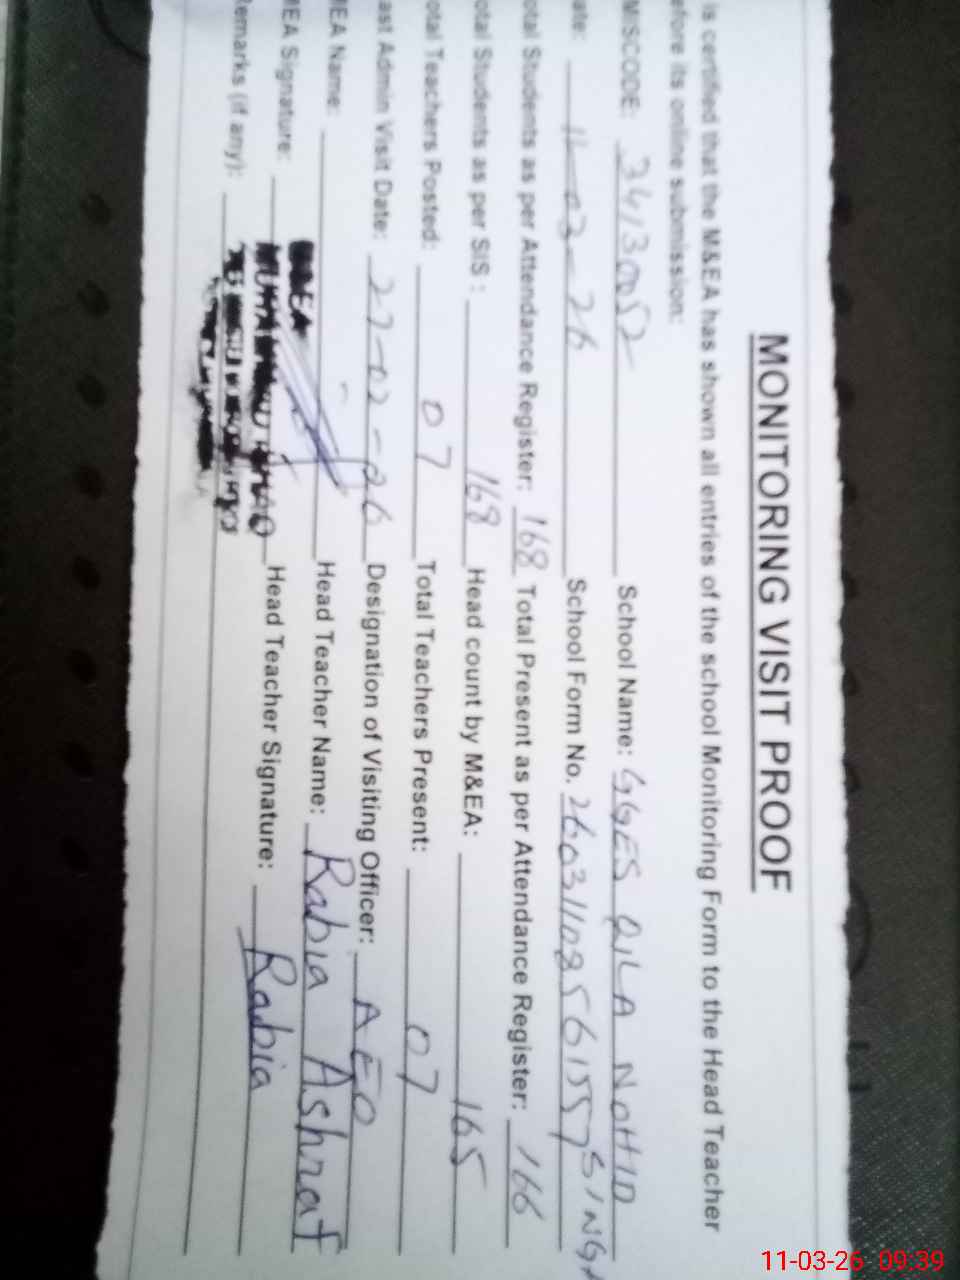 MONITORING VISIT PROOF
is certified that the M&EA has shown all entries of the school Monitoring Form to the Head Teacher
efore its online submission:
MISCODE: 34130052 School Name: GGES QILA NOTHID SINGH
ate: 11-03-26 School Form No. 26031108561557
otal Students as per Attendance Register: 168 Total Present as per Attendance Register: 166
otal Students as per SIS : 168 Head count by M&EA: 165
otal Teachers Posted: 07 Total Teachers Present: 07
ast Admin Visit Date: 27-02-26 Designation of Visiting Officer: AEO
EA Name: Head Teacher Name: Rabia Ashraf
EA Signature: Head Teacher Signature: Rabia
Remarks (if any):
11-03-26 09:39